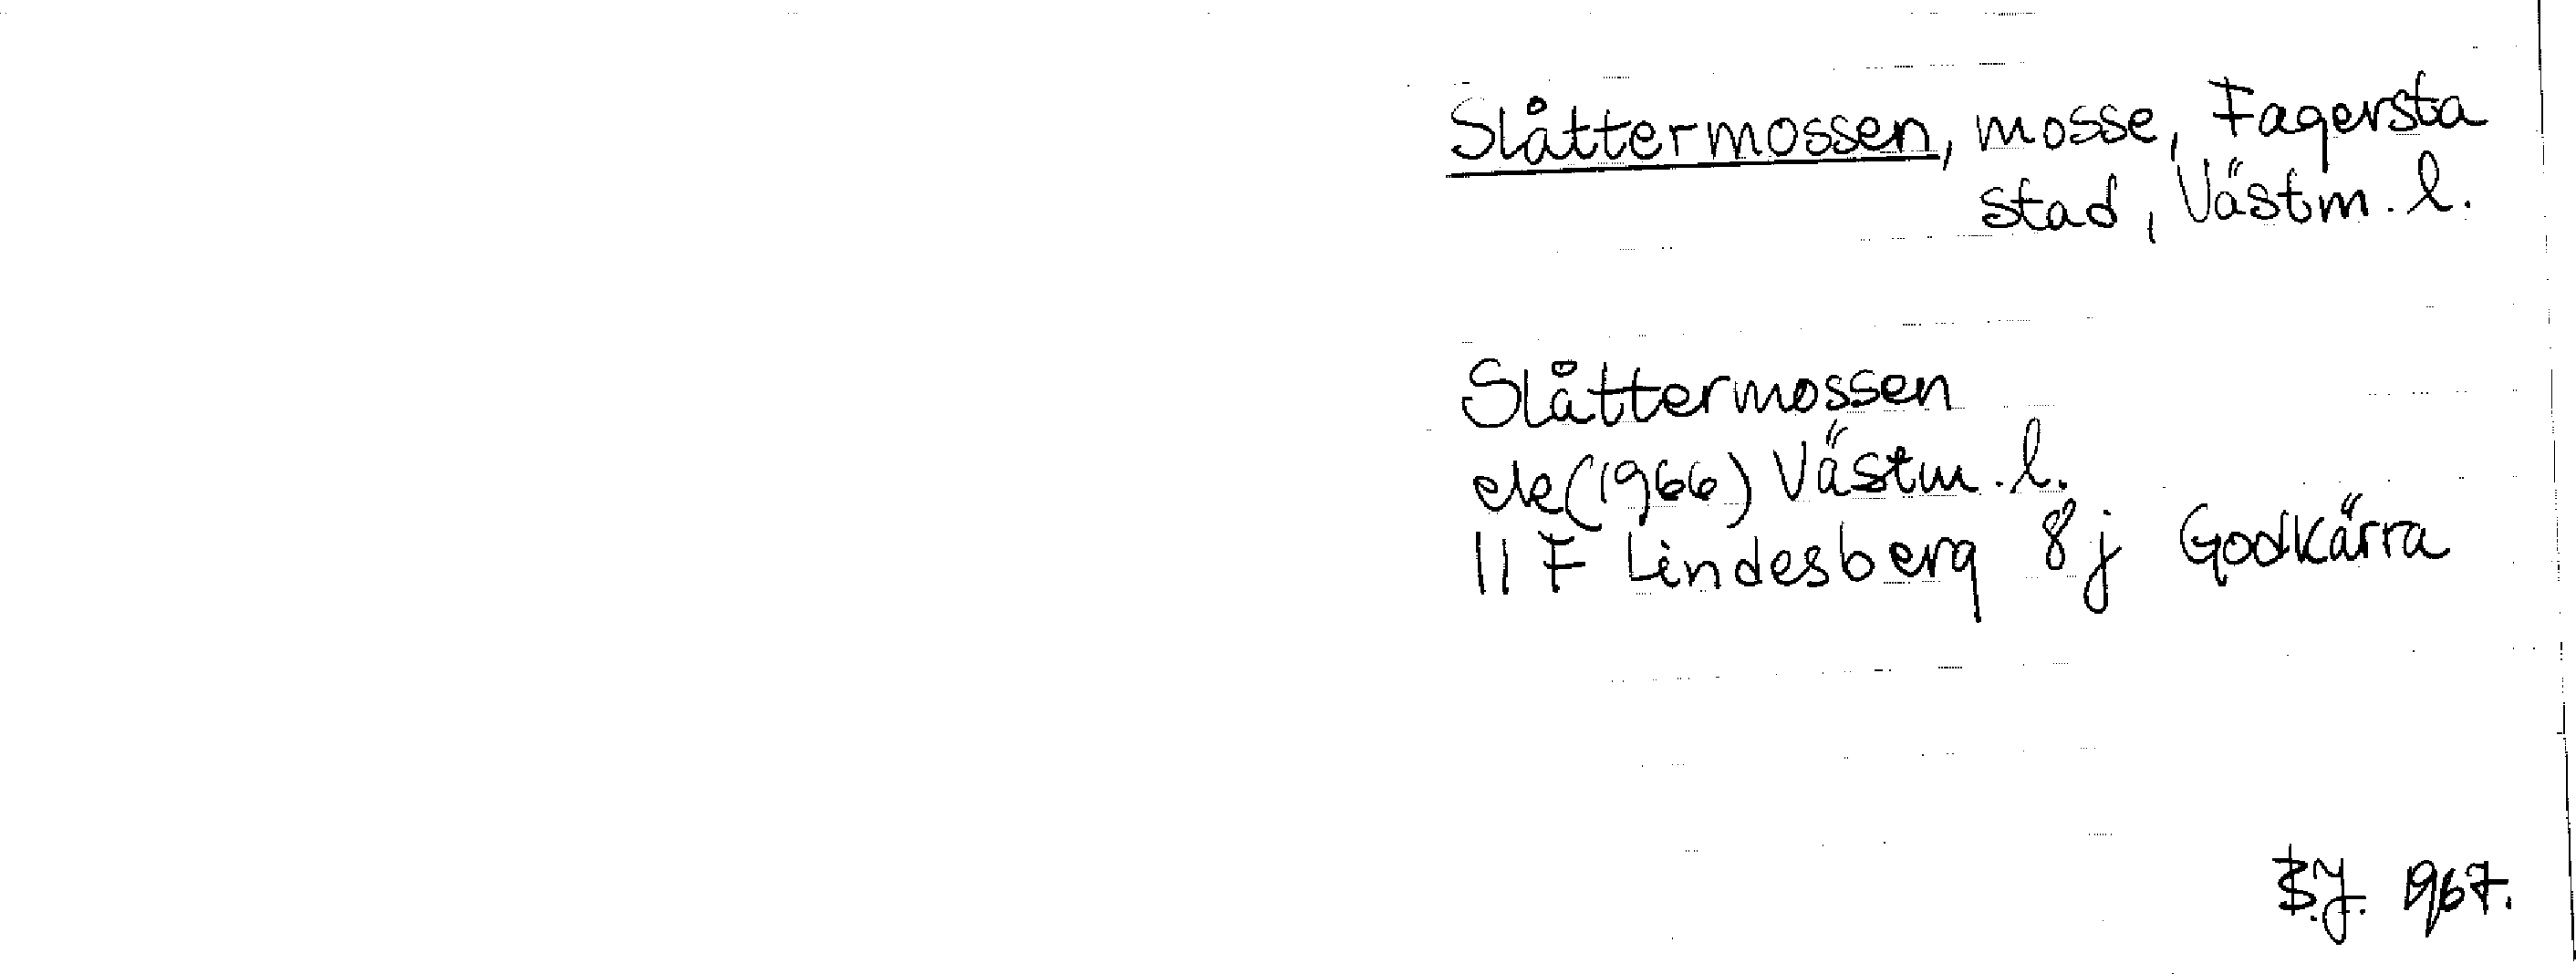 Slåttermossen, mosse, Fagersta
stad, Västm. l.
Slåttermossen
ek (1966) Västm. l.
11 F Lindesberg 8 j Godkärra
B.J. 1967.